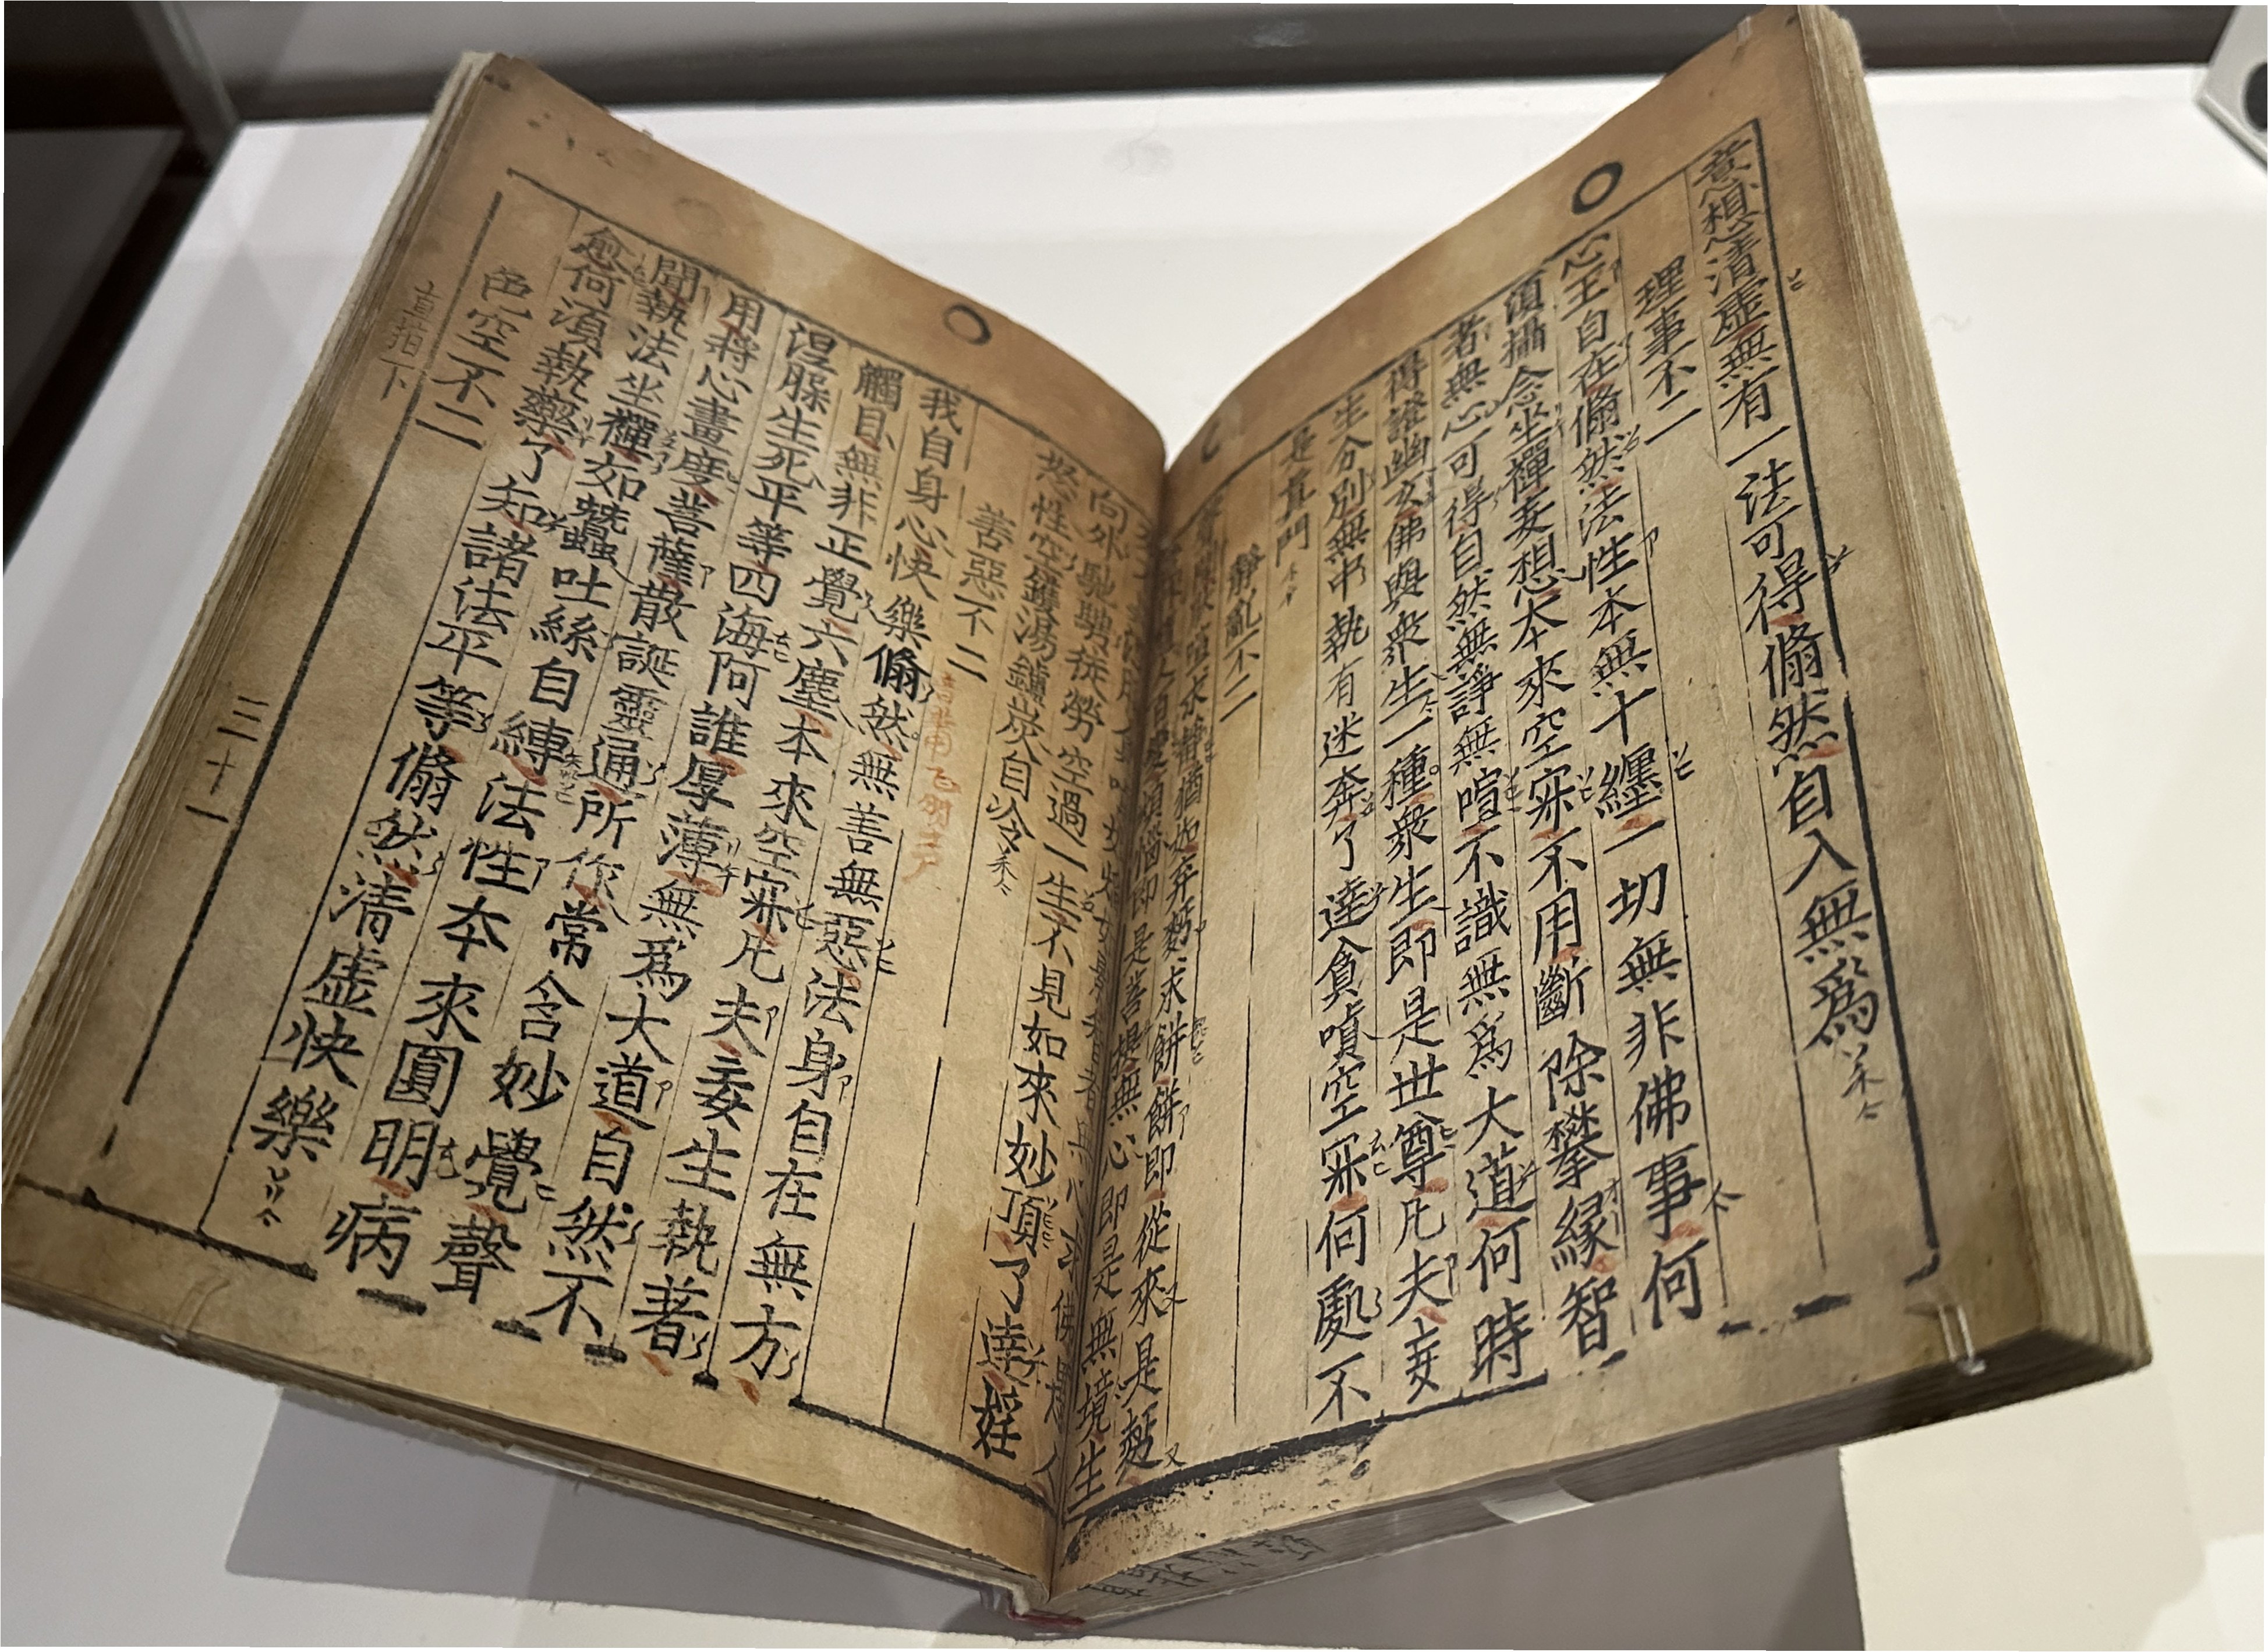 意想清虛無有一法可得翛然自入無爲
理事不二
心王自在翛然法性本無十纏一切無非佛事何
須攝念坐禪妄想本來空寂不用斷除攀緣智
者無心可得自然無諍無喧不識無爲大道何時
得證幽玄佛與衆生一種衆生即是世尊凡夫妄
生分別無中執有迷奔了達貪嗔空寂何處不
是真門
靜亂不二
喧求靜猶如弃麪求餅餅即從來是麪
煩惱即是菩提無心即是無境生
向外馳騁徒勞空過一生不見如來妙頂了達婬
慾性空鑊湯鑪炭自冷
善惡不二
我自身心快樂翛然無善無惡法身自在無方
觸目無非正覺六塵本來空寂凡夫妄生執著
涅槃生死平等四海阿誰厚薄無爲大道自然不
用將心畫度菩薩散誕靈通所作常含妙覺聲
聞執法坐禪如蠶吐絲自縛法性本來圓明病
愈何須執藥了知諸法平等翛然清虛快樂
色空不二
直指下
三十一